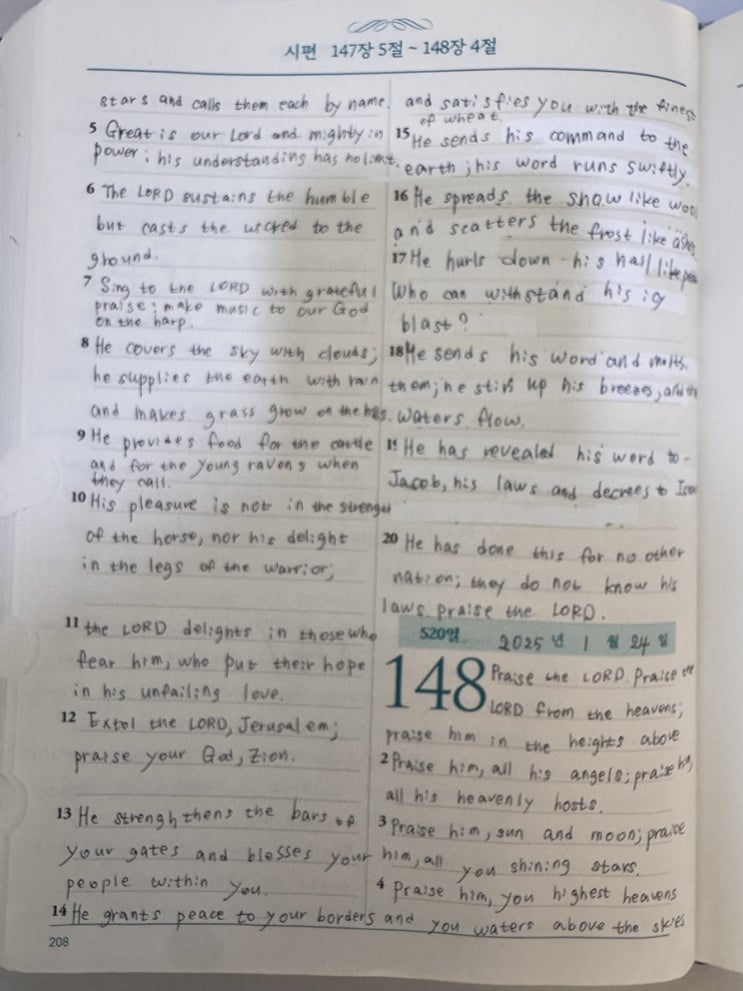 시편 147장 5절 ~ 148장 4절
stars and calls them each by name.
5 Great is our Lord and mighty in
power; his understanding has no limit.
6 The LORD sustains the humble
but casts the wicked to the
ground.
7 Sing to the LORD with grateful
praise; make music to our God
on the harp.
8 He covers the sky with clouds;
he supplies the earth with rain
and makes grass grow on the hills.
9 He provides food for the cattle
and for the young ravens when
they call.
10 His pleasure is not in the strenget
of the horse, nor his delight
in the legs of the warrior;
11 the LORD delights in those who
fear him, who put their hope
in his unfailing love.
12 Extol the LORD, Jerusalem;
praise your God, Zion.
13 He strenghthens the bars of
your gates and blesses your
people within you.
14 He grants peace to your borders
208
and satisfies you with the finest
of wheat.
15 He sends his command to the
earth; his word runs swiftly.
16 He spreads the snow like wool
and scatters the frost like ashes
17 He hurls down his hail like
Who can withstand his icy
blast?
18 He sends his word and melts
them; he stirs up his breezes, and the
waters flow.
19 He has revealed his word to
Jacob, his laws and decrees to
20 He has done this for no other
nation; they do not know his
laws. praise the LORD.
520일 2025 년 1 월 24 일
148 Praise the LORD. Praise the
LORD from the heavens;
praise him in the heights above
2 Praise him, all his angels; praise him,
all his heavenly hosts.
3 Praise him, sun and moon; praise
him, all you shining stars.
4 Praise him, you highest heavens
and you waters above the skies